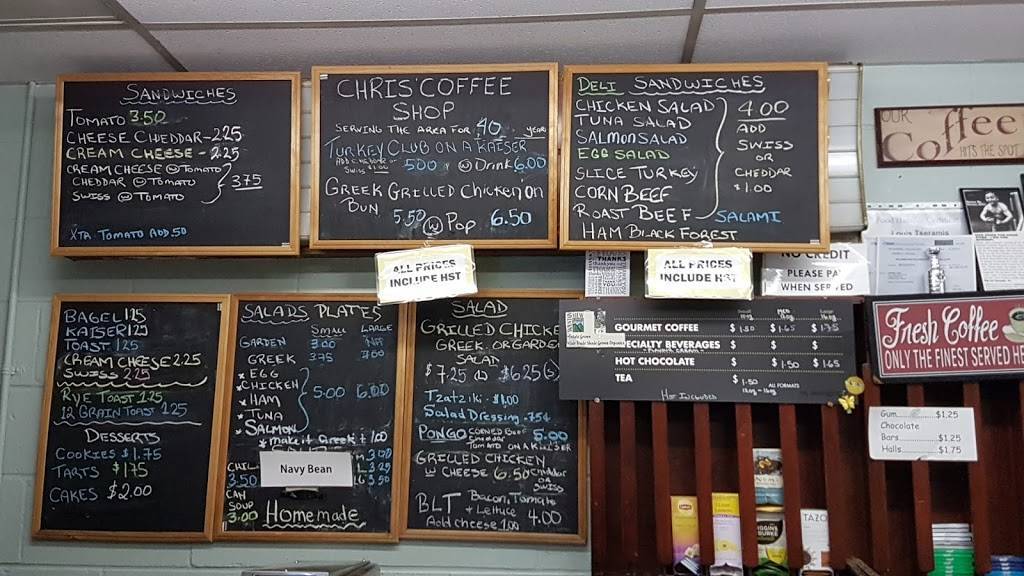 SANDWICHES
TOMATO 3.50
CHEESE CHEDDAR - 2.25
CREAM CHEESE - 2.25
CREAM CHEESE W TOMATO
CHEDDAR W TOMATO
SWISS W TOMATO
3.75
XTR TOMATO ADD .50
CHRIS' COFFEE
SHOP
SERVING THE AREA FOR 40 YEARS
TURKEY CLUB ON A KAISER
500 W DRINK 6.00
GREEK GRILLED CHICKEN ON
BUN
5.50 W POP 6.50
DELI SANDWICHES
CHICKEN SALAD
TUNA SALAD
SALMON SALAD
EGG SALAD
SLICE TURKEY
CORN BEEF
ROAST BEEF
SALAMI
HAM BLACK FOREST
4.00
ADD
SWISS
OR
CHEDDAR
$1.00
OUR
Coffee
HITS THE SPOT
ALL PRICES
INCLUDE HST
ALL PRICES
INCLUDE HST
NO CREDIT
PLEASE PAY
WHEN SERVED
BAGEL 1.25
KAISER 1.25
TOAST 1.25
CREAM CHEESE 2.25
SWISS 2.25
RYE TOAST 1.25
12 GRAIN TOAST 1.25
DESSERTS
COOKIES $1.75
TARTS $1.75
CAKES $2.00
SALADS PLATES
SMALL LARGE
GARDEN 3.00
GREEK 3.75 7.00
* EGG
* CHICKEN
* HAM
* TUNA
* SALMON
5.00 6.00
* make it Greek + 1.00
3.50
Navy Bean
SOUP
3.00 Homemade
SALAD
GRILLED CHICKEN
GREEK OR GARDEN
SALAD
$7.25 (L) $6.25 (S)
Tzatziki - $1.00
Salad Dressing .75¢
PONGO CORNED BEEF
5.00
TOM AND ON A KAISER
GRILLED CHICKEN
W CHEESE 6.50 CHEDDAR
OR
SWISS
BLT Bacon, Tomato
+ Lettuce 4.00
Add cheese 1.00
GOURMET COFFEE $1.50 $1.65 $1.75
SPECIALTY BEVERAGES $ $ $
HOT CHOCOLATE $ $1.50 $1.65
TEA $1.50
ALL FORMATS
HST INCLUDED
Fresh Coffee
ONLY THE FINEST SERVED HERE
Gum $1.25
Chocolate
Bars $1.25
Halls $1.75
TAZO